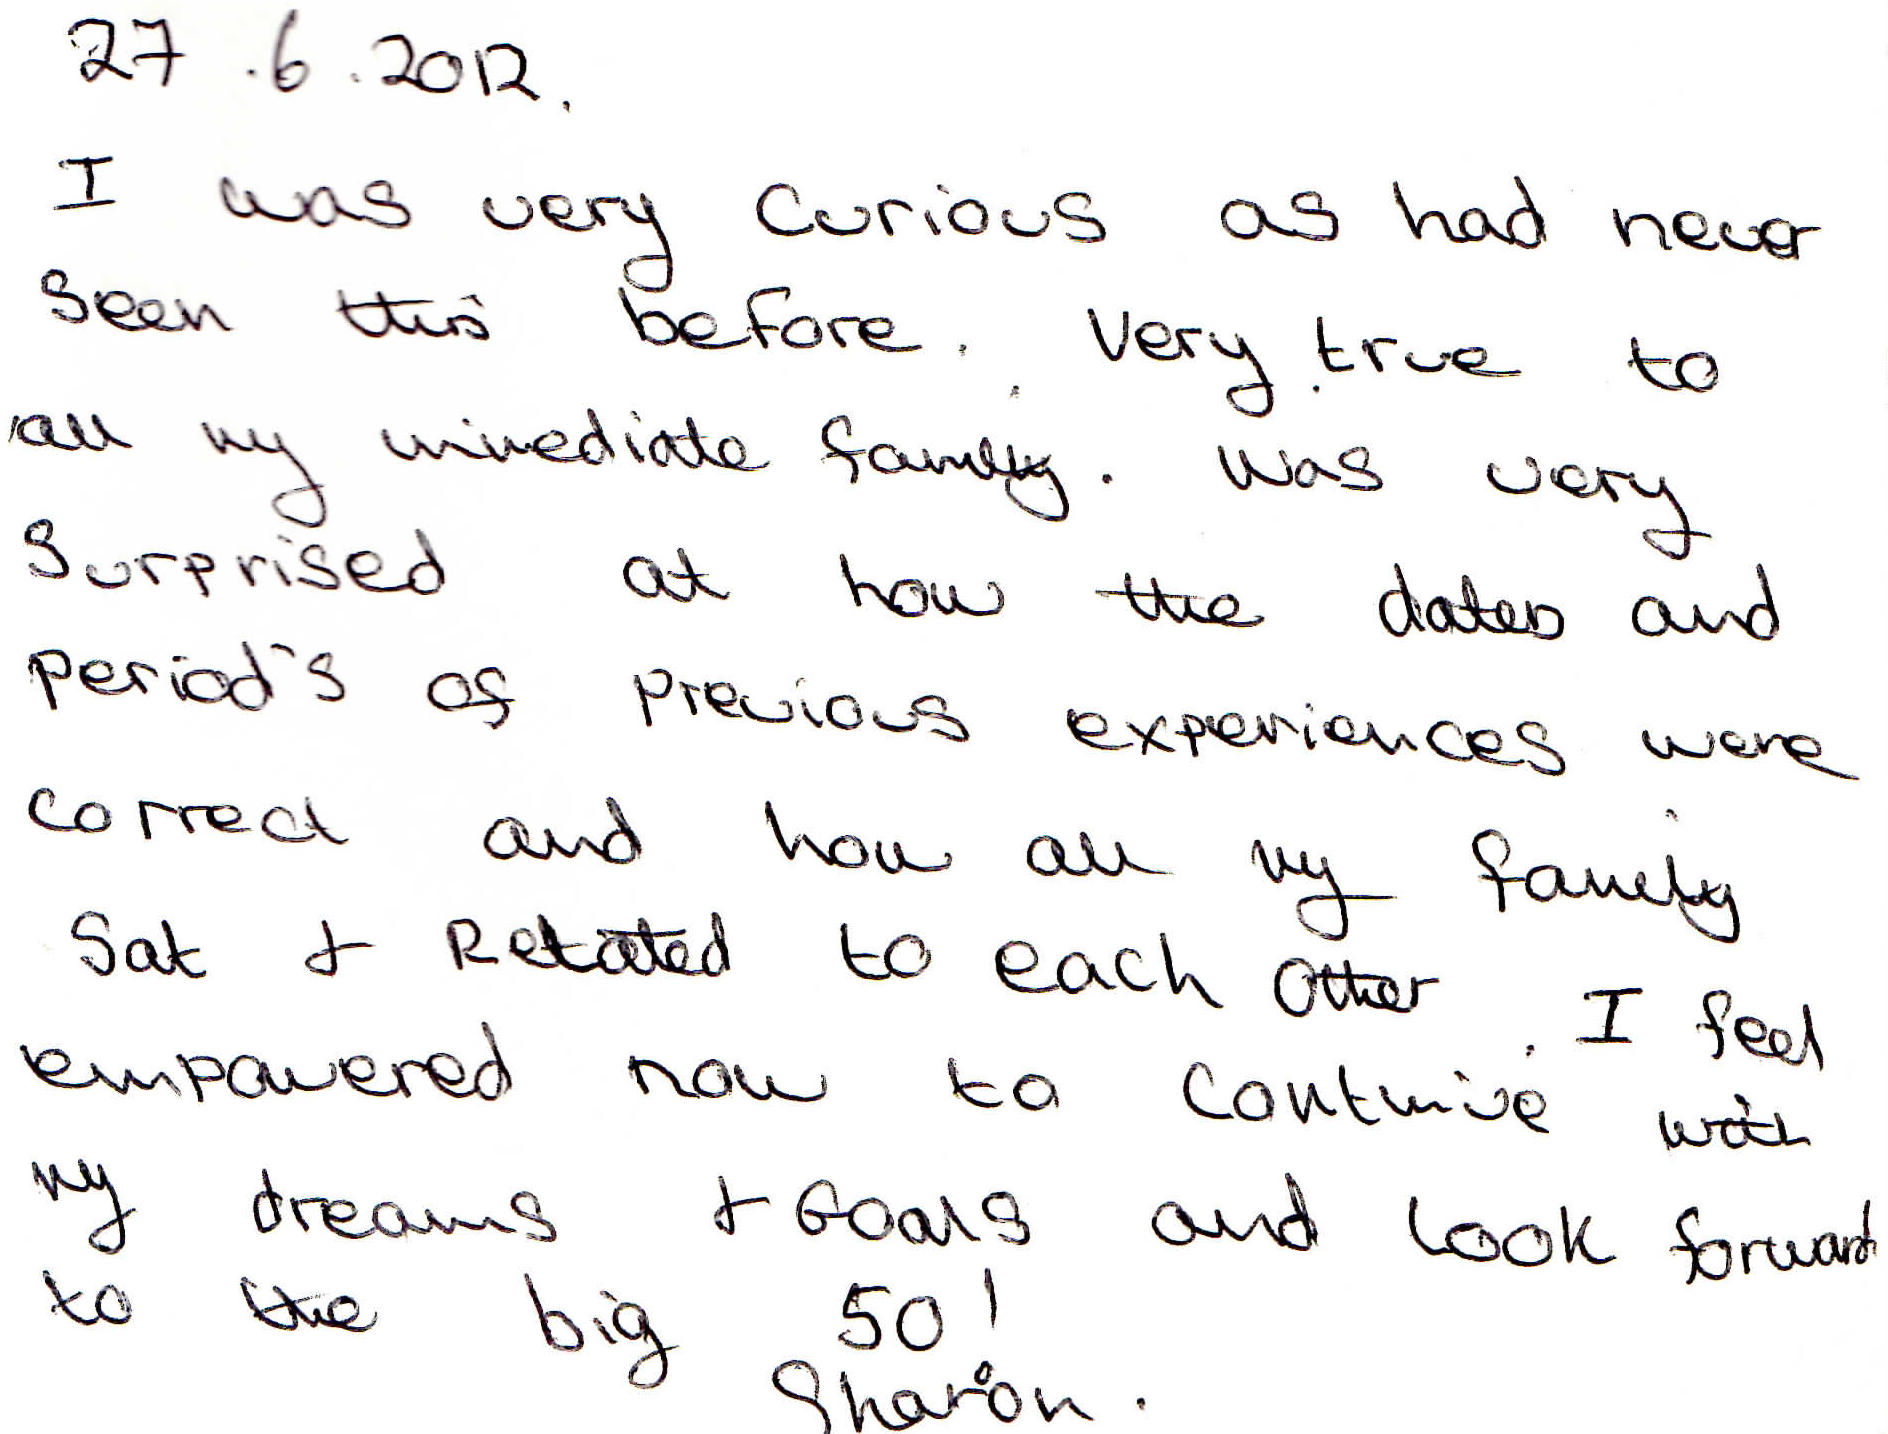 27.6.2012.
I was very curious as had never
seen this before. Very true to
all my immediate family. Was very
Surprised at how the dates and
period's of previous experiences were
correct and how all my family
Sat & Related to each other. I feel
empowered now to continue with
my dreams & Goals and look forward
to the big 50!
Sharon.